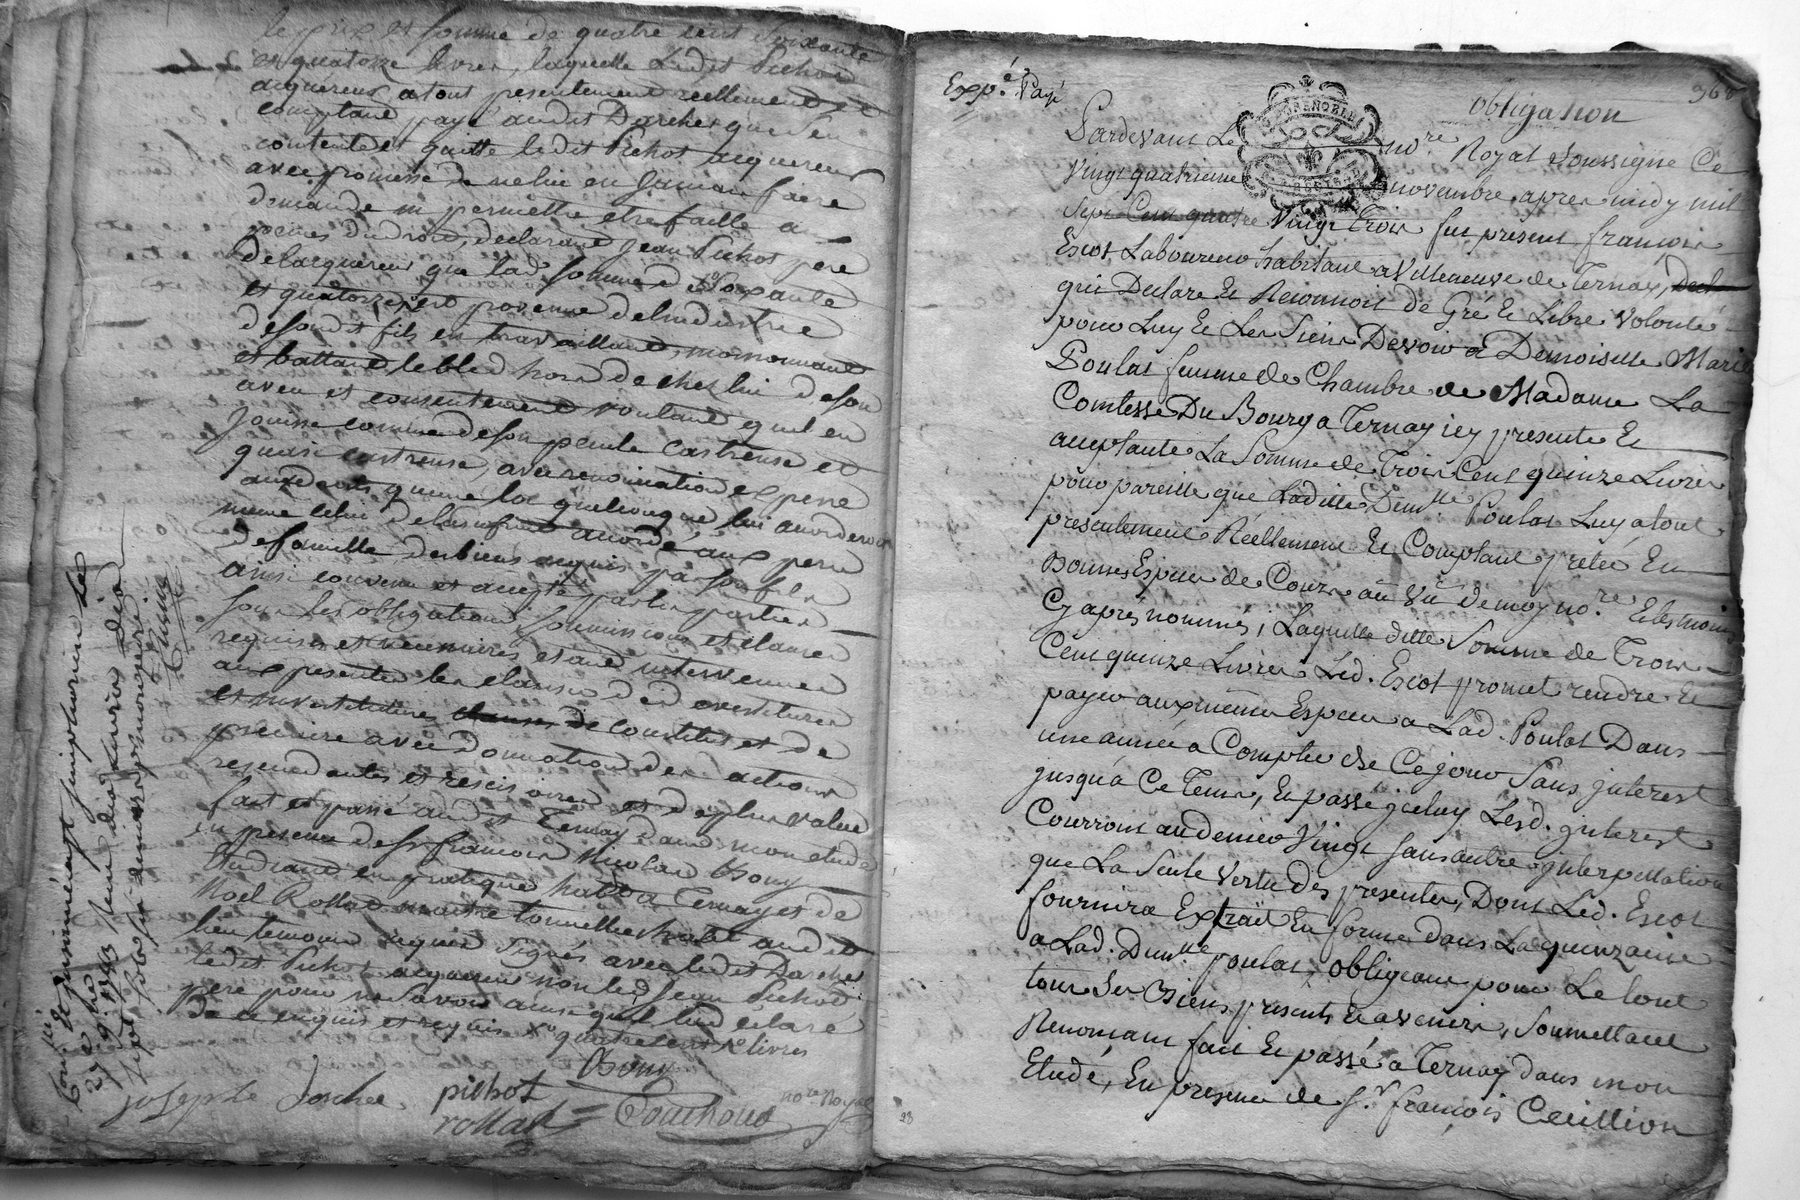 le prix et somme de quatre cent soixante
et quatorze livres, laquelle Ledit Pichot
acquereur a tout presentement reellement et
comptant payé audit Darcher que s'en
contente et quitte ledit Pichot acquereur
avec promesse de ne lui en jamais faire
demande ni permettre etre faitte aux
peines du droit, declarant jean Pichot pere
de lacquereur que lad. somme de soixante
et quatorze, est provenue de lindustrie
de sondit fils en travaillant, moissonnant
et battant le bled hors de chez lui de son
aveu et consentement voulant quil en
jouisse comme de son pecule castrense et
quasi castrense, avec renonciation expresse
aux droits quune loi quelconque lui accorderoit
meme celui de lusufruit accordé aux peres
de famille des biens acquis par son fils
ainsi convenu et accepté par les parties
sous les obligations soumissions et clauses
requises et necessaires, etant intervenues
aux presentes les clauses de devestitures
et investitures de constitut et de
precaire avec donnation des actions
rescendantes et rescisoires et de plus value
fait et passé audit Ternay dans mon etude
en presence de sr. francois Nicolas Bony
etudiant en pratique habt. a Ternay et de
Noel Rollat maitre tonnellier habt. audit
lieu temoins requis signés avec ledit Darcher
ledit Pichot acquereur non led. jean Pichot
pere pour ne savoir ainsi quil lud declaré
de ce enquis et requis quatre cent livres
Bony
joseph Darcher pichot
rollat Couchoud nore. Royal
27 9bre 1783
Expé. Payé
obligation
368
GRENOBLE
Pardevant Le nore. Royal soussigné Ce
Vingt quatrieme novembre apres midy mil
sept Cent quatre Vingt Trois fut present françois
Escot Laboureur habitant a Villeneuve de Ternay,
qui Declare Et Reconnoit de Gré Et Libre Volonté
pour Luy Et Les Siens Devoir a Demoiselle Marie
Poulat femme de Chambre de Madame La
Comtesse Du Bourg a Ternay icy presente Et
acceptante La Somme de Trois Cent quinze Livres
pour pareille que Ladite Demlle. Poulat Luy a tout
presentement Réellement Et Comptant preté En
Bonnes Espèces de Cours au Vû de moy nore. Et temoins
Cy après nommés; Laquelle ditte Somme de Trois
Cent quinze Livres Led. Escot promet rendre Et
payer aux mêmes Especes a Lad. Poulat Dans
une année a Compter De Ce jour Sans jnterest
jusqu'a Ce Tems, Et passé jceluy Lesd. jnterest
Courront au denier Vingt sans autre jnterpellation
que La Seule Vertu des presentes, Dont Led. Escot
fournira Extrait En forme dans La quinzaine
a Lad. Demlle. poulat, obligeant pour Le tout
tous Ses Biens presents Et avenirs, Soumettant
Renonçant fait Et passé a Ternay dans mon
Etude, En presence de Sr. françois Cecillion
23